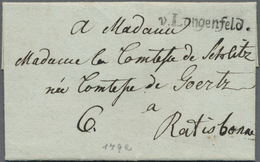 a Madame
v. Langenfeld.
Madame la Comtesse de Schlitz
née Comtesse de Goertz
à
C. Ratisbonne
1792